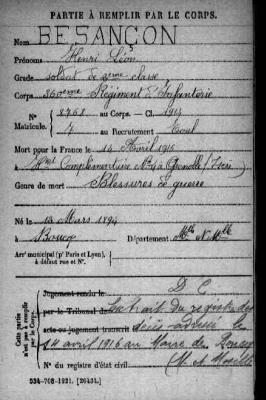 PARTIE À REMPLIR PAR LE CORPS.
Nom BESANÇON
Prénoms Henri Léon
Grade soldat de 2eme classe
Corps 360eme Régiment d'Infanterie
N° 8768 au Corps. — Cl. 1914
Matricule. 4 au Recrutement Toul
Mort pour la France le 14 Avril 1916
à Hopal Complémentaire N° 4 à Grenoble (Isère)
Genre de mort Blessures de guerre
Né le 13 Mars 1894
à Boucq Département Mthe N. Mlle
Arrt municipal (pr Paris et Lyon),
à défaut rue et N°.
Cette partie
n'est pas à remplir
par le Corps.
Jugement rendu le D C
par le Tribunal de Extrait du registre des
acte ou jugement transcrit décès adressé le
14 avril 1916 au Maire de Boucq
N° du registre d'état civil (M. et Moselle)
534-708-1921. [26434.]